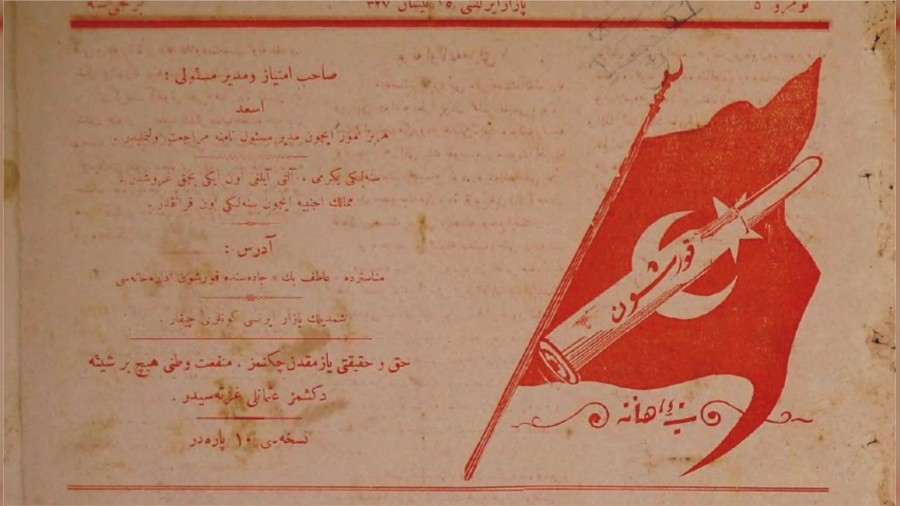 نومرو ٥
پازارايرتسى ١٥ نيسان ٣٢٧
برنجى سنه
صاحب امتياز ومدير مسئولى :
اسعد
هر بر امور ايچون مدير مسئول نامنه مراجعت اولنمليدر .
سنه‌لكى يكرمى ، آلتى آيلغى اون ايكى بچق غروشدر .
ممالك اجنبيه ايچون سنه‌لكى اون فرانقدر .
آدرس :
مناسترده عاطف بك جاده‌سنده قورشون اداره‌خانه‌سى
شمديلك پازار ايرتسى كونلرى چيقار .
حق و حقيقتى يازمقدن چكنمز . منفعت وطنى هيچ بر شيئه
دكشمز عثمانلى غزته‌سيدر .
نسخه‌سى ١٠ پاره‌در
قورشون